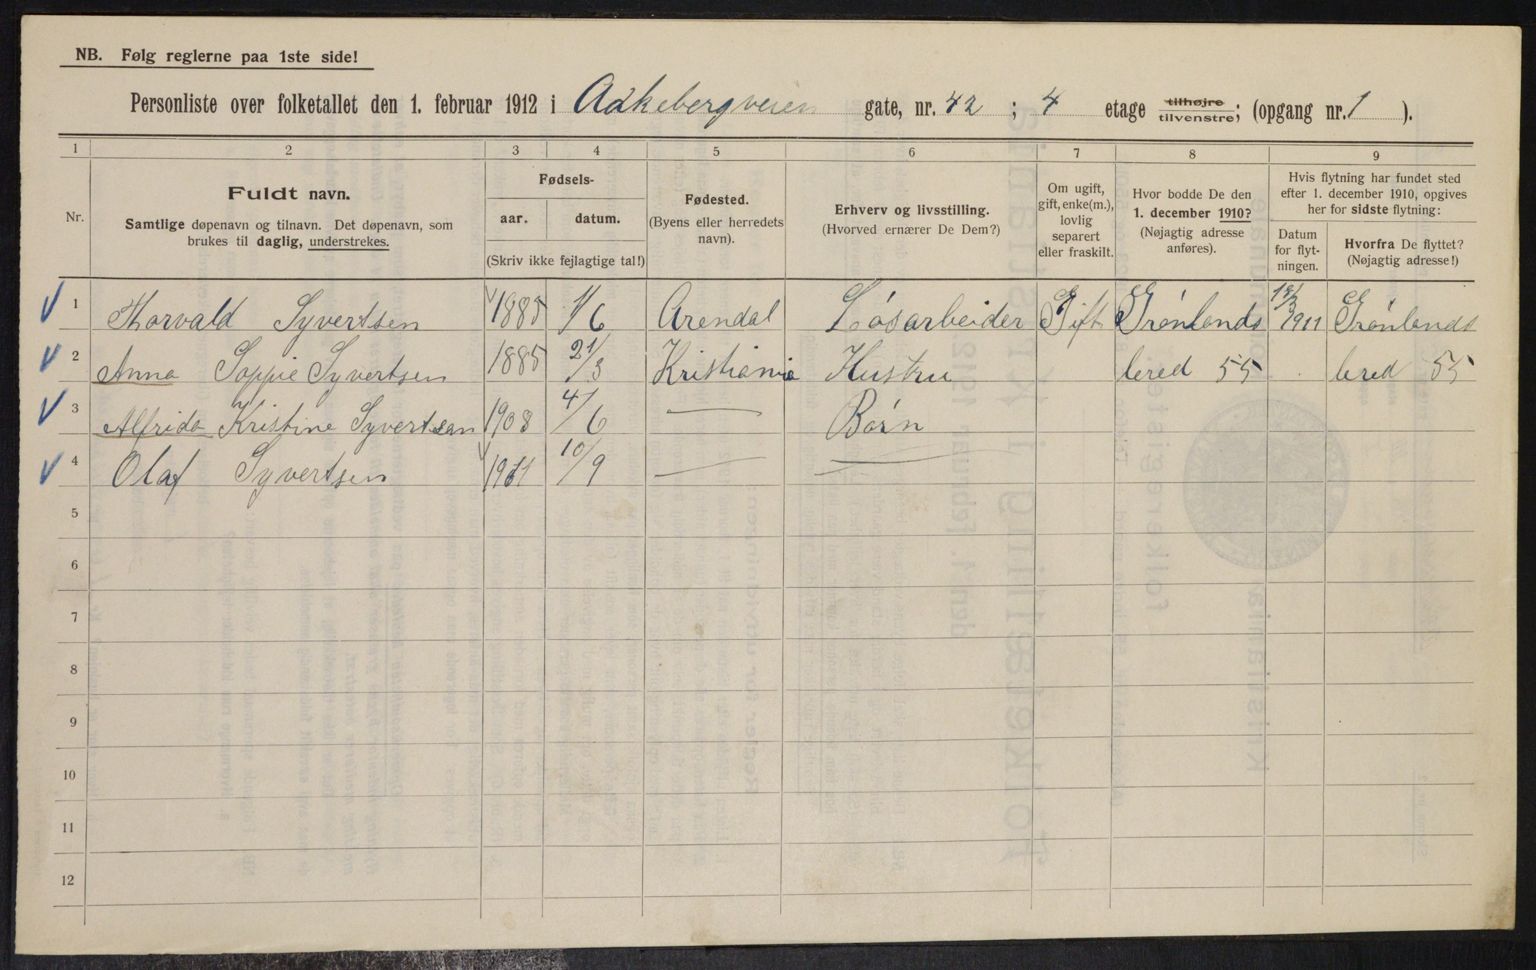 NB. Følg reglerne paa 1ste side!
Personliste over folketallet den 1. februar 1912 i Aakebergveien gate, nr. 42 ; 4 etage tilhøjre tilvenstre; (opgang nr. 1 ).
1 2 3 4 5 6 7 8 9
Nr.
Fuldt navn.
Samtlige døpenavn og tilnavn. Det døpenavn, som
brukes til daglig, understrekes.
Fødsels-
aar. datum.
(Skriv ikke fejlagtige tal!)
Fødested.
(Byens eller herredets
navn).
Erhverv og livsstilling.
(Hvorved ernærer De Dem?)
Om ugift,
gift, enke(m.),
lovlig
separert
eller fraskilt.
Hvor bodde De den
1. december 1910?
(Nøjagtig adresse
anføres).
Hvis flytning har fundet sted
efter 1. december 1910, opgives
her for sidste flytning:
Datum
for flyt-
ningen.
Hvorfra De flyttet?
(Nøjagtig adresse!)
1 Thorvald Syvertsen 1885 1/6 Arendal Løsarbeider Gift Grønlands 1911 Grønlands
2 Anna Soppie Syvertsen 1885 21/3 Kristiania Hustru lered 55 lered 55
3 Alfrida Kristine Syvertsen 1908 4/6 — Børn
4 Olaf Syvertsen 1911 10/9 — —
5
6
7
8
9
10
11
12